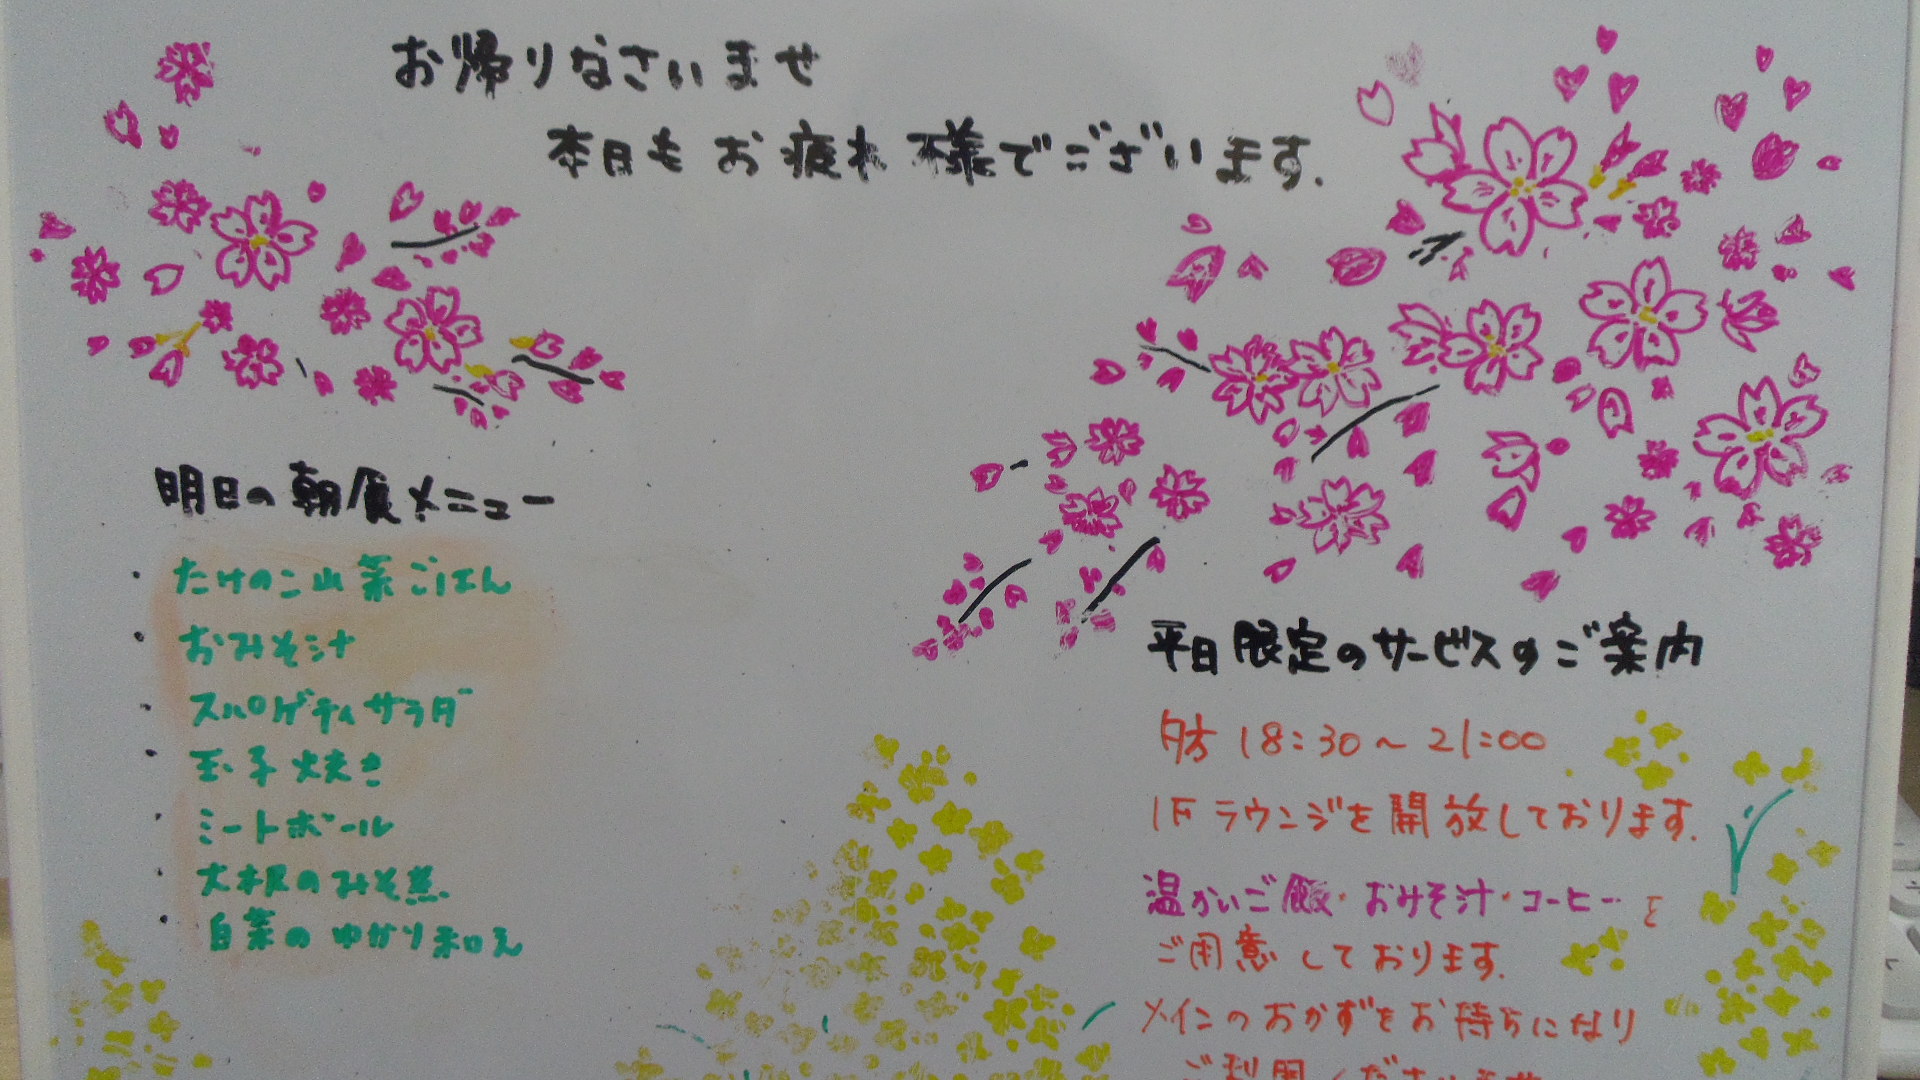 お帰りなさいませ
本日もお疲れ様でございます.
明日の朝食メニュー
・たけのこ山菜ごはん
・おみそ汁
・スパゲティサラダ
・玉子焼き
・ミートボール
・大根のみそ煮
・白菜のゆかり和え
平日限定のサービスのご案内
夕方 18:30～21:00
1Fラウンジを開放しております.
温かいご飯・おみそ汁・コーヒーを
ご用意しております.
メインのおかずをお待ちになり
ご利用くださいませ